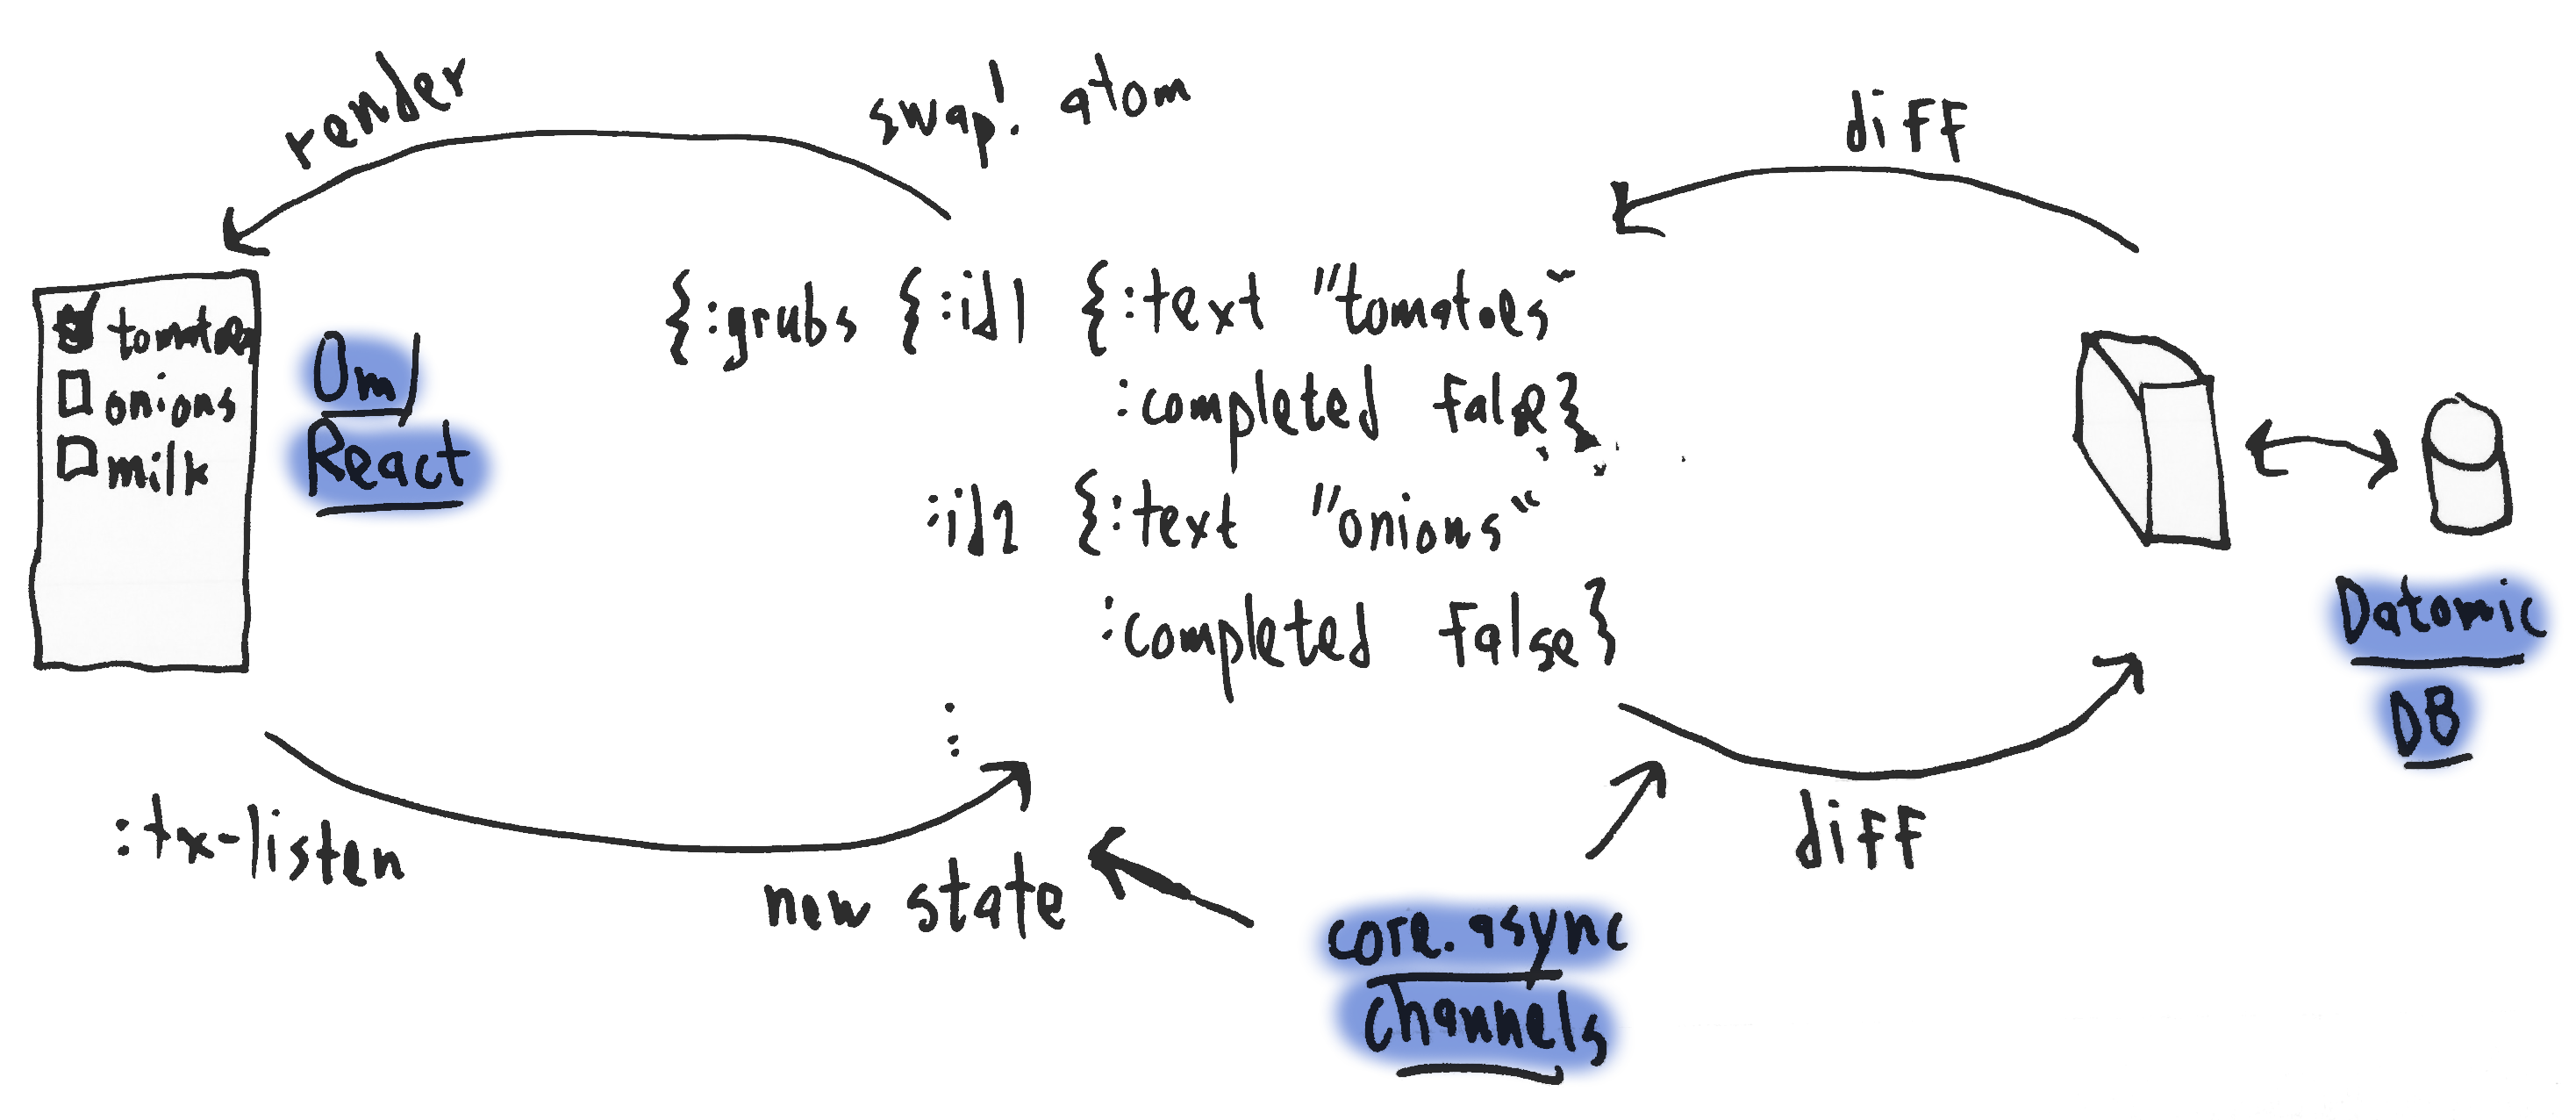 render
swap! atom
diff
tomatoes
onions
milk
Om/
React
{:grubs {:id1 {:text "tomatoes"
:completed false}
:id2 {:text "onions"
:completed false}
:
:tx-listen
new state
core.async
channels
diff
Datomic
DB